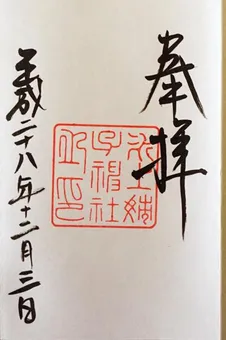 奉拝
子神社
平成二十八年十二月三日